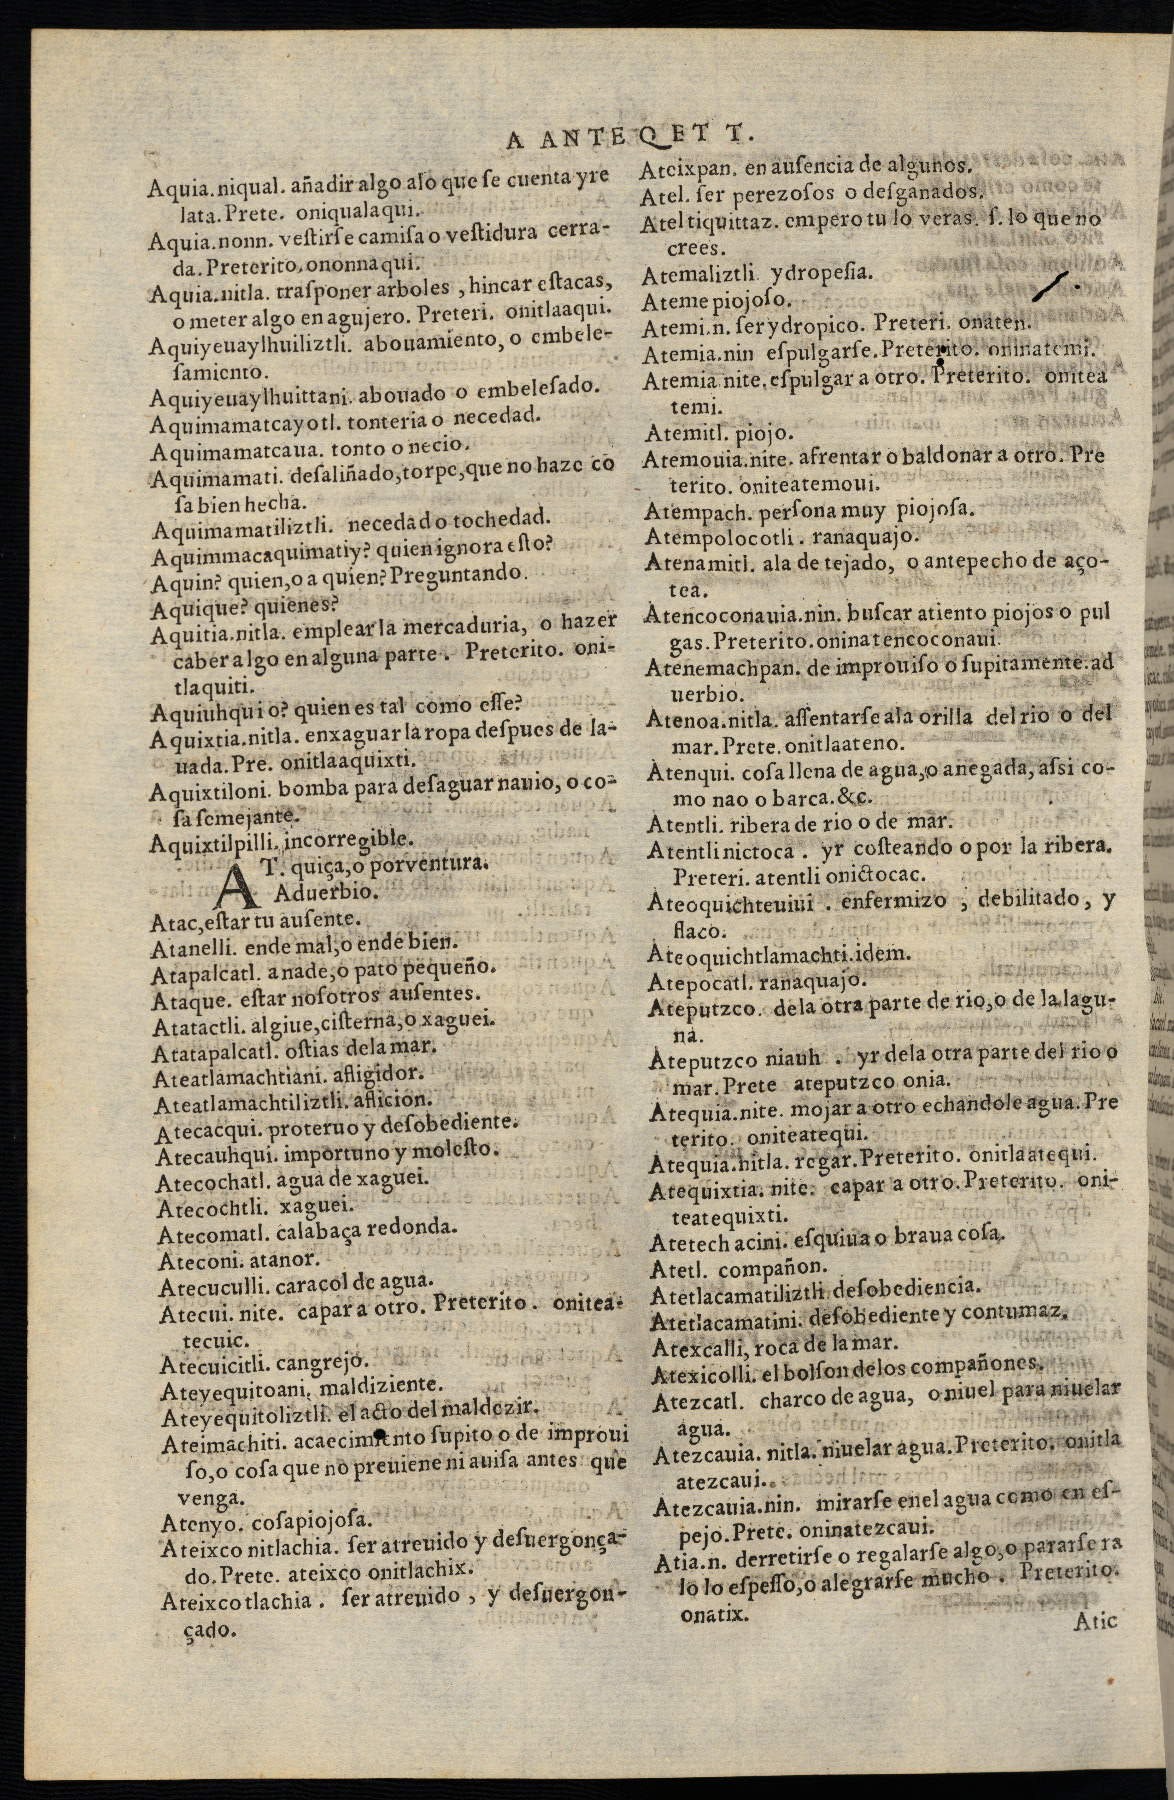 A ANTE Q ET T.
Aquia. niqual. añadir algo alo que ſe cuenta y re
lata. Prete. oniqualaqui.
Aquia. nonn. veſtirſe camiſa o veſtidura cerra-
da. Preterito. ononnaqui.
Aquia. nitla. traſponer arboles, hincar eſtacas,
o meter algo en agujero. Preteri. onitlaaqui.
Aquiyeuaylhuiliztli. abouamiento, o embele-
ſamiento.
Aquiyeuaylhuittani. abouado o embeleſado.
Aquimamatcayotl. tonteria o necedad.
Aquimamatcaua. tonto o necio.
Aquimamati. deſaliñado, torpe, que no haze co
ſa bien hecha.
Aquimamatiliztli. necedad o tochedad.
Aquimmacaquimatiy? quien ignora eſto?
Aquin? quien, o a quien? Preguntando.
Aquique? quienes?
Aquitia. nitla. emplear la mercaduria, o hazer
caber algo en alguna parte. Preterito. oni-
tlaquiti.
Aquiuhquio? quien es tal como eſſe?
Aquixtia. nitla. enxaguar la ropa deſpues de la-
uada. Pre. onitlaaquixti.
Aquixtiloni. bomba para deſaguar nauio, o co-
ſa ſemejante.
Aquixtilpilli. incorregible.
AT. quiça, o porventura.
Aduerbio.
Atac, eſtar tu auſente.
Atanelli. ende mal, o ende bien.
Atapalcatl. anade, o pato pequeño.
Ataque. eſtar noſotros auſentes.
Atatactli. algiue, ciſterna, o xaguei.
Atatapalcatl. oſtias dela mar.
Ateatlamachtiani. afligidor.
Ateatlamachtiliztli. aflicion.
Atecacqui. proteruo y deſobediente.
Atecauhqui. importuno y moleſto.
Atecochatl. agua de xaguei.
Atecochtli. xaguei.
Atecomatl. calabaça redonda.
Ateconi. atanor.
Atecuculli. caracol de agua.
Atecui. nite. capar a otro. Preterito. onitea-
tecuic.
Atecuicitli. cangrejo.
Ateyequitoani. maldiziente.
Ateyequitoliztli. el acto del maldezir.
Ateimachiti. acaecimiento ſupito o de improui
ſo, o coſa que no preuiene ni auiſa antes que
venga.
Atenyo. coſa piojoſa.
Ateixco nitlachia. ſer atreuido y deſuergonça-
do. Prete. ateixco onitlachix.
Ateixco tlachia. ſer atreuido, y deſuergon-
çado.
Ateixpan. en auſencia de algunos.
Atel. ſer perezoſos o deſganados.
Atel tiquittaz. empero tu lo veras. ſ. lo que no
crees.
Atemaliztli ydropeſia.
Ateme piojoſo.
Atemi. n. ſer ydropico. Preteri. onaten.
Atemia. nin eſpulgarſe. Preterito. oninatemi.
Atemia nite. eſpulgar a otro. Preterito. onitea
temi.
Atemitl. piojo.
Atemouia. nite. afrentar o baldonar a otro. Pre
terito. oniteatemoui.
Atempach. perſona muy piojoſa.
Atempolocotli. ranaquajo.
Atenamitl. ala de tejado, o antepecho de aço-
tea.
Atencoconauia. nin. buſcar atiento piojos o pul
gas. Preterito. oninatencoconaui.
Atenemachpan. de improuiſo o ſupitamente. ad
uerbio.
Atenoa. nitla. aſſentarſe ala orilla del rio o del
mar. Prete. onitlaateno.
Atenqui. coſa llena de agua, o anegada, aſsi co-
mo nao o barca. &c.
Atentli. ribera de rio o de mar.
Atentli nictoca. yr coſteando o por la ribera.
Preteri. atentli onictocac.
Ateoquichteuiui. enfermizo, debilitado, y
flaco.
Ateoquichtlamachti. idem.
Atepocatl. ranaquajo.
Ateputzco. dela otra parte de rio, o de la lagu-
na.
Ateputzco niauh. yr dela otra parte del rio o
mar. Prete ateputzco onia.
Atequia. nite. mojar a otro echandole agua. Pre
terito. oniteatequi.
Atequia. nitla. regar. Preterito. onitlaatequi.
Atequixtia. nite. capar a otro. Preterito. oni-
teatequixti.
Atetech acini. eſquiua o braua coſa.
Atetl. compañon.
Atetlacamatiliztli. deſobediencia.
Atetlacamatini. deſobediente y contumaz.
Atexcalli, roca de la mar.
Atexicolli. el bolſon delos compañones.
Atezcatl. charco de agua, o niuel para niuelar
agua.
Atezcauia. nitla. niuelar agua. Preterito. onitla
atezcaui.
Atezcauia. nin. mirarſe enel agua como en eſ-
pejo. Prete. oninatezcaui.
Atia. n. derretirſe o regalarſe algo, o pararſe ra
lo lo eſpeſſo, o alegrarſe mucho. Preterito.
onatix.
Atic